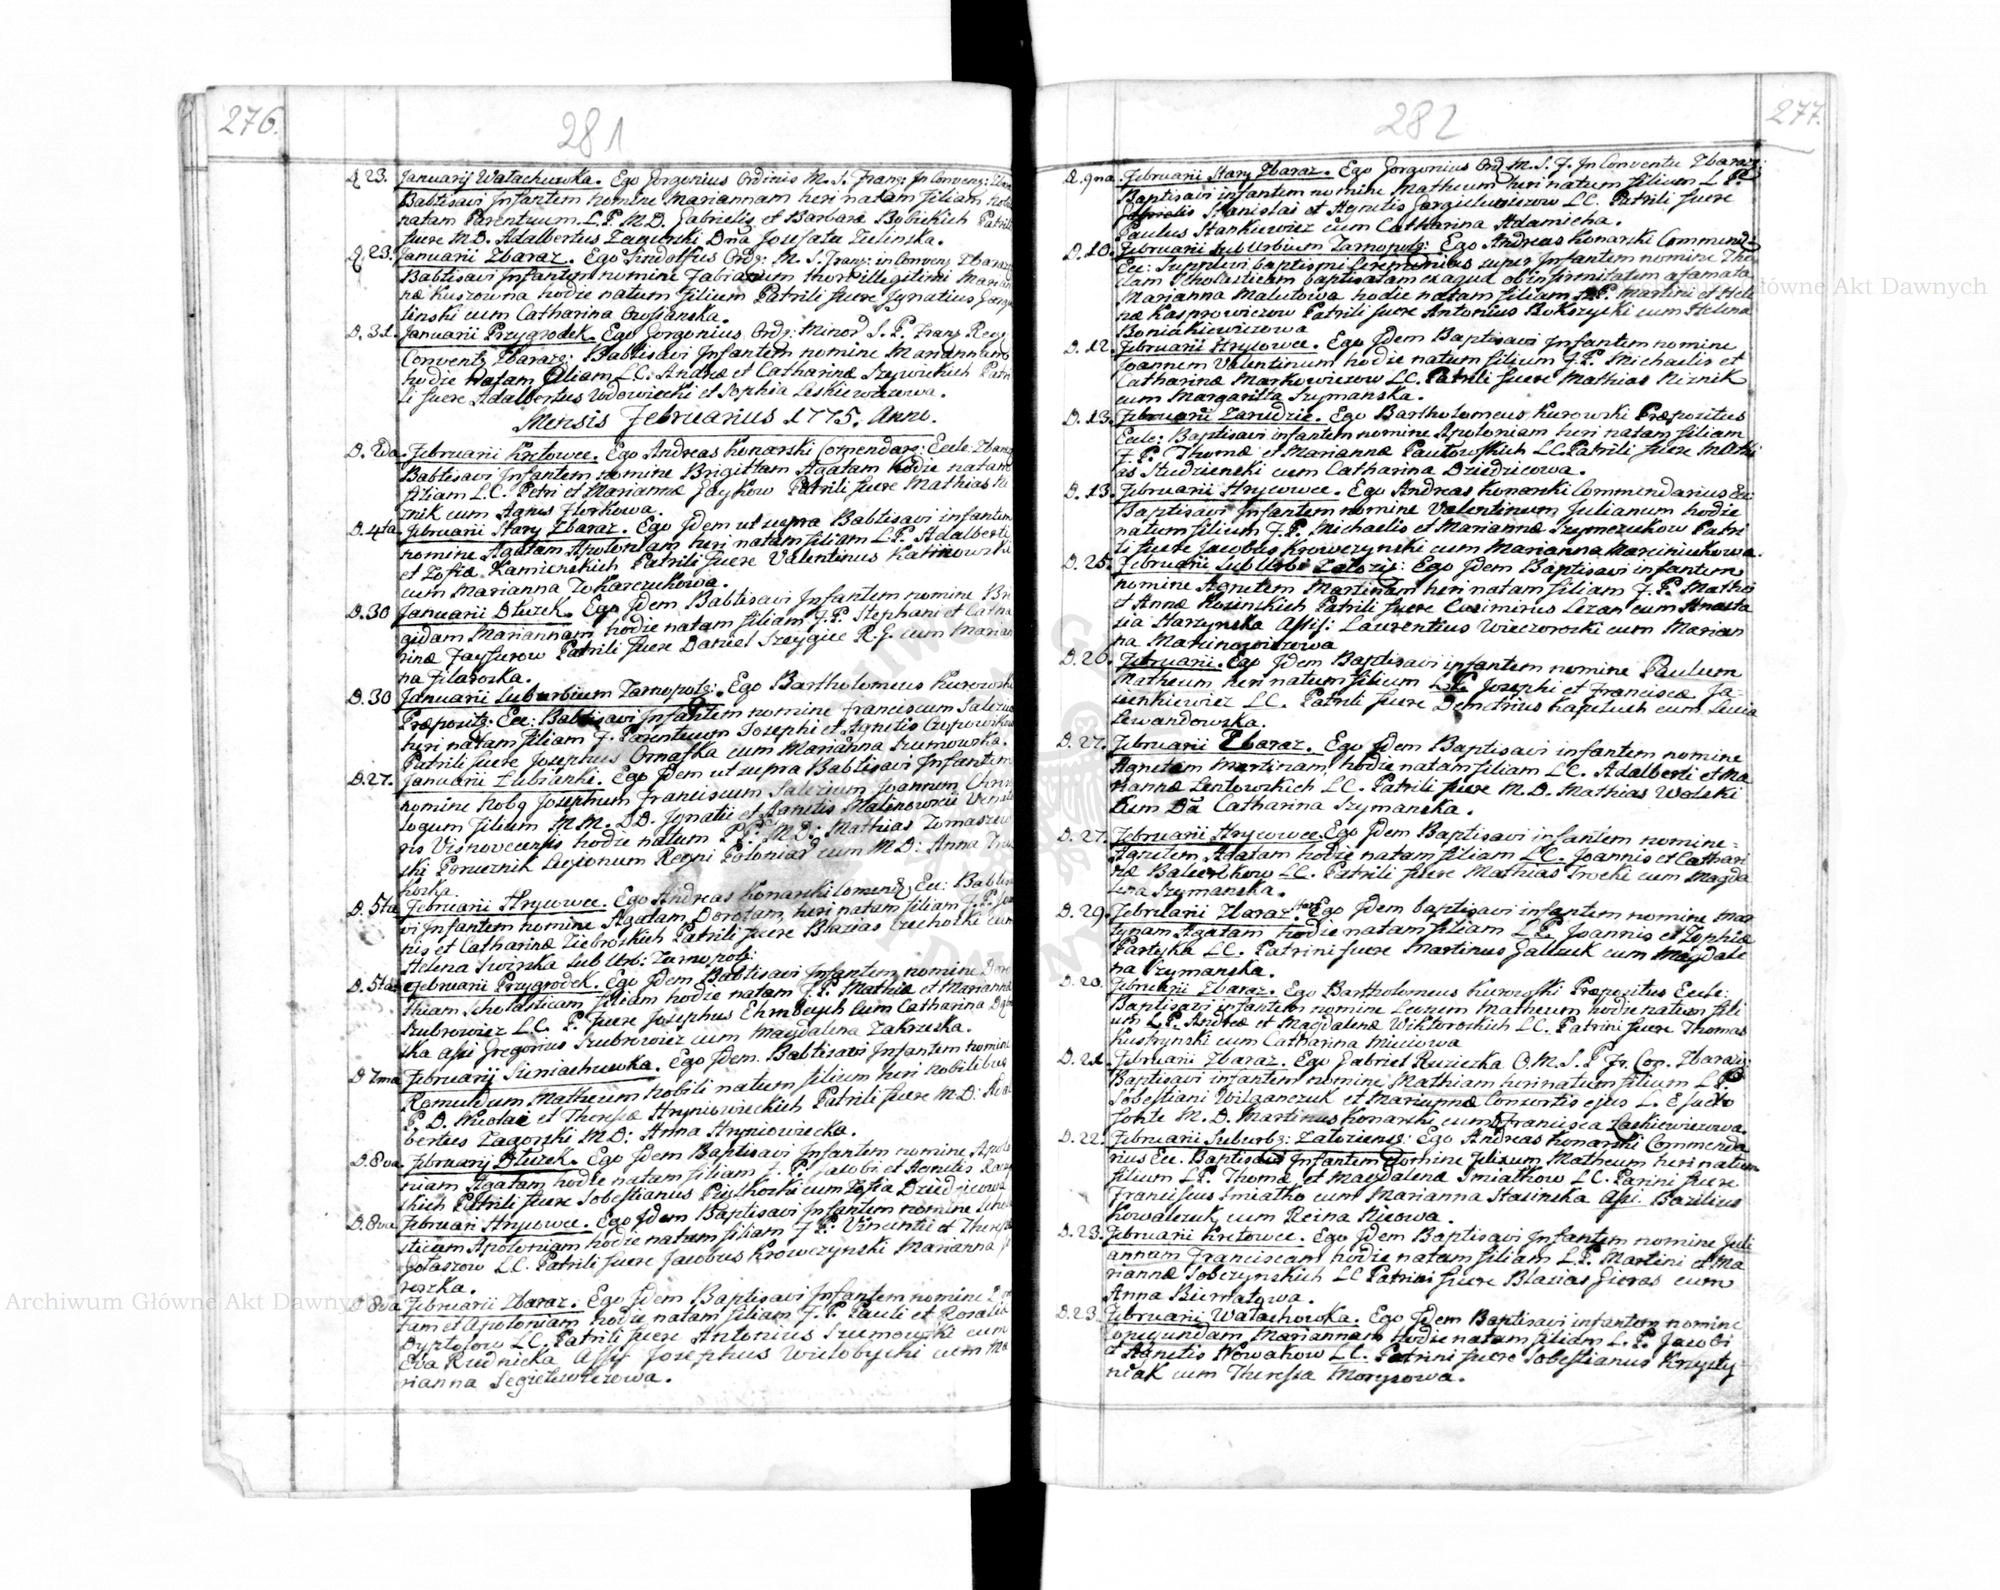 276.
281
D 23. Januarij Wałachuwka. Ego Gorgonius Ordinis M. S. Franz: In Convenz:
Babtisavi Infantem nomine Mariannam heri natam filiam
natam Parentuum L.P. M.D. Gabrielis et Barbaræ Bobickich Patrili
fuere M.D. Adalbertus Zagurski Dna Josefata Zielinska.
D 23. Januarii Zbaraz. Ego Ord: M. S. Franz: in Convenz Zbaraz
Babtisavi Infantem nomine Fabianum thori illegitimi Marian
næ Kuszowna hodie natum filium Patrili fuere Jgnatius
linski cum Catharina
D. 31. Januarii Przygrodek. Ego Gorgonius Ord: Minor S. P. Franz Reg
Conventz Zbaraz: Babtisavi Infantem nomine Mariannam
hodie natam filiam L.C. Andreæ et Catharinæ Szewickich Patri
li fuere Adalbertus Wdowiecki et Sophia Leskiewiczowa.
Mensis Februarius 1775. Anno.
D. 2da Februarii Kretowce. Ego Andreas Konarski Comendarz: Eccle: Zbaraz
Babtisavi Infantem nomine Brigittam Agatam hodie natam
filiam L.C. Petri et Mariannæ Gaykow Patrili fuere Mathias Ni
znik cum Agnes Florkowa.
D. 4ta Februarii Stary Zbaraz. Ego Jdem ut supra Babtisavi infantem
nomine Agatam Apoloniam heri natam filiam L.P. Adalberti
et Zofiæ Kamienskich Patrili fuere Valentinus Katinowski
cum Marianna Tokarczukowa.
D. 30 Januarii Dłuzek. Ego Jdem Babtisavi Infantem nomine Bri
gidam Mariannam hodie natam filiam J.P. Stephani et Catha
rinæ Fayfurow Patrili fuere Daniel Szeygiec R.G. cum Marian
na Filaroska.
D. 30 Januarii Suburbium Tarnopolz: Ego Bartholomeus Kurowski
Præpositz: Ecc: Babtisavi Infantem nomine Franciscum Salezium
heri natam filiam J. Parentuum Josephi et Agnetis
Patrili fuere Josephus Ornafka cum Marianna Szumowska.
D. 27. Januarii Łubianki. Ego Jdem ut supra Babtisavi Infantem
nomine Nobg Josephum Franciscum Salezium Joannem Chri
logum filium M.M. D.D. Jgnatii et Agnetis Malinowncii
ris Visnovecensis hodie natum P.P. M.D: Mathias Tomaszew
ski Porucznik Legionum Regni Poloniar cum M.D: Anna
koska.
D. 5ta Februarii Hrycowce. Ego Andreas Konarski Comend: Ec: Babtisa
vi Infantem nomine Agatam Dorotam heri natam filiam J.P. Joan
nis et Catharinæ Ziebroskich Patrili fuere Blazias Czecholki cum
Helena Swirska Sub Urb: Tarnopolz:
D. 5ta Februarii Przygrodek. Ego Jdem Babtisavi Infantem nomine Doro
thiam Scholasticam filiam hodie natam J.P. Mathiæ et Mariannæ
Szubrowicz L.C. P. fuere Josephus Ehmbeych cum Catharina
ska assi Gregorius Szubrowicz cum Magdalena Zakrzeska.
D 7ma Februarij Sieniachuwka. Ego Jdem Babtisavi Infantem nomine
Romuldum Matheum nobili natum filium heri nobilibus
P. D. Nicolai et Theresiæ Hryniowieckich Patrili fuere M.D: Adal
bertus Zagorski M.D: Anna Hryniowiecka.
D. 8va Februarij Dłuzek. Ego Jdem Baptisavi Infantem nomine Apolo
niam Agatam hodie natam filiam J.P. Jacobi et Agnetis
skich Patrili fuere Sobestianus Przytkorki cum Zofia Dziedzicowa
D. 8va Februari Hrycowce. Ego Jdem Baptisavi Infantem nomine Schola
sticam Apoloniam hodie natam filiam J.P. Vincentii et Theresiæ
Gołaszow L.C. Patrili fuere Jacobus Krowczynski Marianna
roszka.
D 8va Februarii Zbaraz. Ego Jdem Baptisavi Infantem nomine
tam et Apoloniam hodie natam filiam J.P. Pauli et Rosaliæ
Dyrlosow L.C. Patrili fuere Antonius Szumowski cum
Eva Rudnicka Assis Josephus Wielobycki cum Ma
rianna Segielewiczowa.
282
277.
D. 9na Februarii Stary Zbaraz. Ego Gorgonius Ord M. S. F. In Conventu Zbaraz:
Baptisavi infantem nomine Matheum heri natum filium L.P.
Stanislai et Agnetis Gorgielewiczow L.C. Patrili fuere
Paulus Stankiewicz cum Catharina Adamicha.
D. 10. Februarii Sub Urbium Tarnopolz: Ego Andreas Konarski Commend:
Ecc: Supplevi baptismi Ceremonias super Infantem nomine The
clam Scholasticam baptisatam ex aqua ob infirmitatem a famata
Marianna Malutowa hodie natam filiam J.P. Martini et Hele
næ Kasprowiczow Patrili fuere Antonius Bokszycki cum Helena
Boniatkiewiczowa
D. 12. Februarii Hrycowce. Ego Jdem Baptisavi Infantem nomine
Joannem Valentinum hodie natum filium J.P. Michaelis et
Catharinæ Markowiczow L.C. Patrili fuere Mathias Niznik
cum Margaritta Szymanska.
D. 13. Februarii Zarudzie. Ego Bartholomeus Kurowski Præpositus
Eccle: Baptisavi infantem nomine Apoloniam heri natam filiam
J.P. Thomæ et Mariannæ Pautowskich L.C. Patrili fuere Mathi
as Studzienski cum Catharina Dziedzicowa.
D. 13. Februarii Hrycowce. Ego Andreas Konarski Commendarius Ec:
Baptisavi Infantem nomine Valentinum Julianum hodie
natum filium J.P. Michaelis et Mariannæ Szymczukow Patri
li fuere Jacobus Krowczynski cum Marianna Marciniukowa.
D. 25. Februarii Sub Urb: Załozi: Ego Jdem Baptisavi infantem
nomine Agnetem Martinam heri natam filiam J.P. Mathiæ
et Annæ Kozinskich Patrili fuere Casimirus Lezan cum Anasta
sia Starzynska Assis: Laurentius Wieczoroski cum Marian
na Marcinowiczowa
D. 26. Februarii. Ego Jdem Baptisavi infantem nomine Paulum
Matheum heri natum filium L.C. Josephi et Franciscæ Ja-
cienkiewicz L.C. Patrili fuere Demetrius Kapeluch cum Lucia
Lewandowska.
D. 27. Februarii Zbaraz. Ego Jdem Baptisavi infantem nomine
Agnetam Martinam, hodie natam filiam L.C. Adalberti et Ma
riannæ Zentowskich L.C. Patrili fuere M.D. Mathias Wolski
cum Dna Catharina Szymanska.
D. 27. Februarii Hrycowce. Ego Jdem Baptisavi infantem nomine=
Agnetem Agatam hodie natam filiam L.C. Joannis et Cathari
næ L.C. Patrili fuere Mathias Trocki cum Magda
lena Szymanska.
D. 29. Februarii Zbaraz Stary Ego Jdem baptisavi infantem nomine Mar
tynam Agatam hodie natam filiam L.P. Joannis et Zophiæ
Partyka L.C. Patrini fuere Martinus Galczuk cum Magdale
na Szymanska.
D. 20. Februarii Zbaraz. Ego Bartholomeus Kurowski Præpositus Eccle:
Baptisavi infantem nomine Leonem Matheum hodie natum fili
um L.P. Andreæ et Magdalenæ Wiktoroskich L.C. Patrini fuere Thomas
Kustrynski cum Catharina Miciowa
D. 21. Februarii Zbaraz. Ego Gabriel Ruziczka O.M.S.P. Fr. Con. Zbaraz:
Baptisavi infantem nomine Mathiam heri natum filium L.P.
Sobestiani Wilganczuk et Mariannæ Consortis ejus L. E sacro
fonte M.D. Martinus Konarski cum Francisca Laskiewiczowa.
D. 22. Februarii Suburbz: Załoziensz: Ego Andreas Konarski Commenda
rius Ecc. Baptisavi Infantem nomine Felixum Matheum heri natum
filium L.P. Thomæ et Magdalenæ Smiatkow L.C. Parini fuere
Franciscus Smiatko cum Marianna Stasinska assi. Bazilius
Kowalczuk cum Reina Nicowa.
D. 23. Februarii Kretowce. Ego Jdem Baptisavi Infantem nomine Juli
annam Franciscam hodie natam filiam L.P. Martini et Ma
riannæ Sobczynskich L.C Patrini fuere Blazias Gieras cum
Anna Biernatowa.
D. 23. Februarii Wałachowka. Ego Jdem Baptisavi infantem nomine
Conegundam Mariannam hodie natam filiam L.P. Jacobi
et Agnetis Nowakow L.C. Patrini fuere Sobestianus Krzysty
niak cum Theressa Morysowa.
Archiwum Główne Akt Dawnych